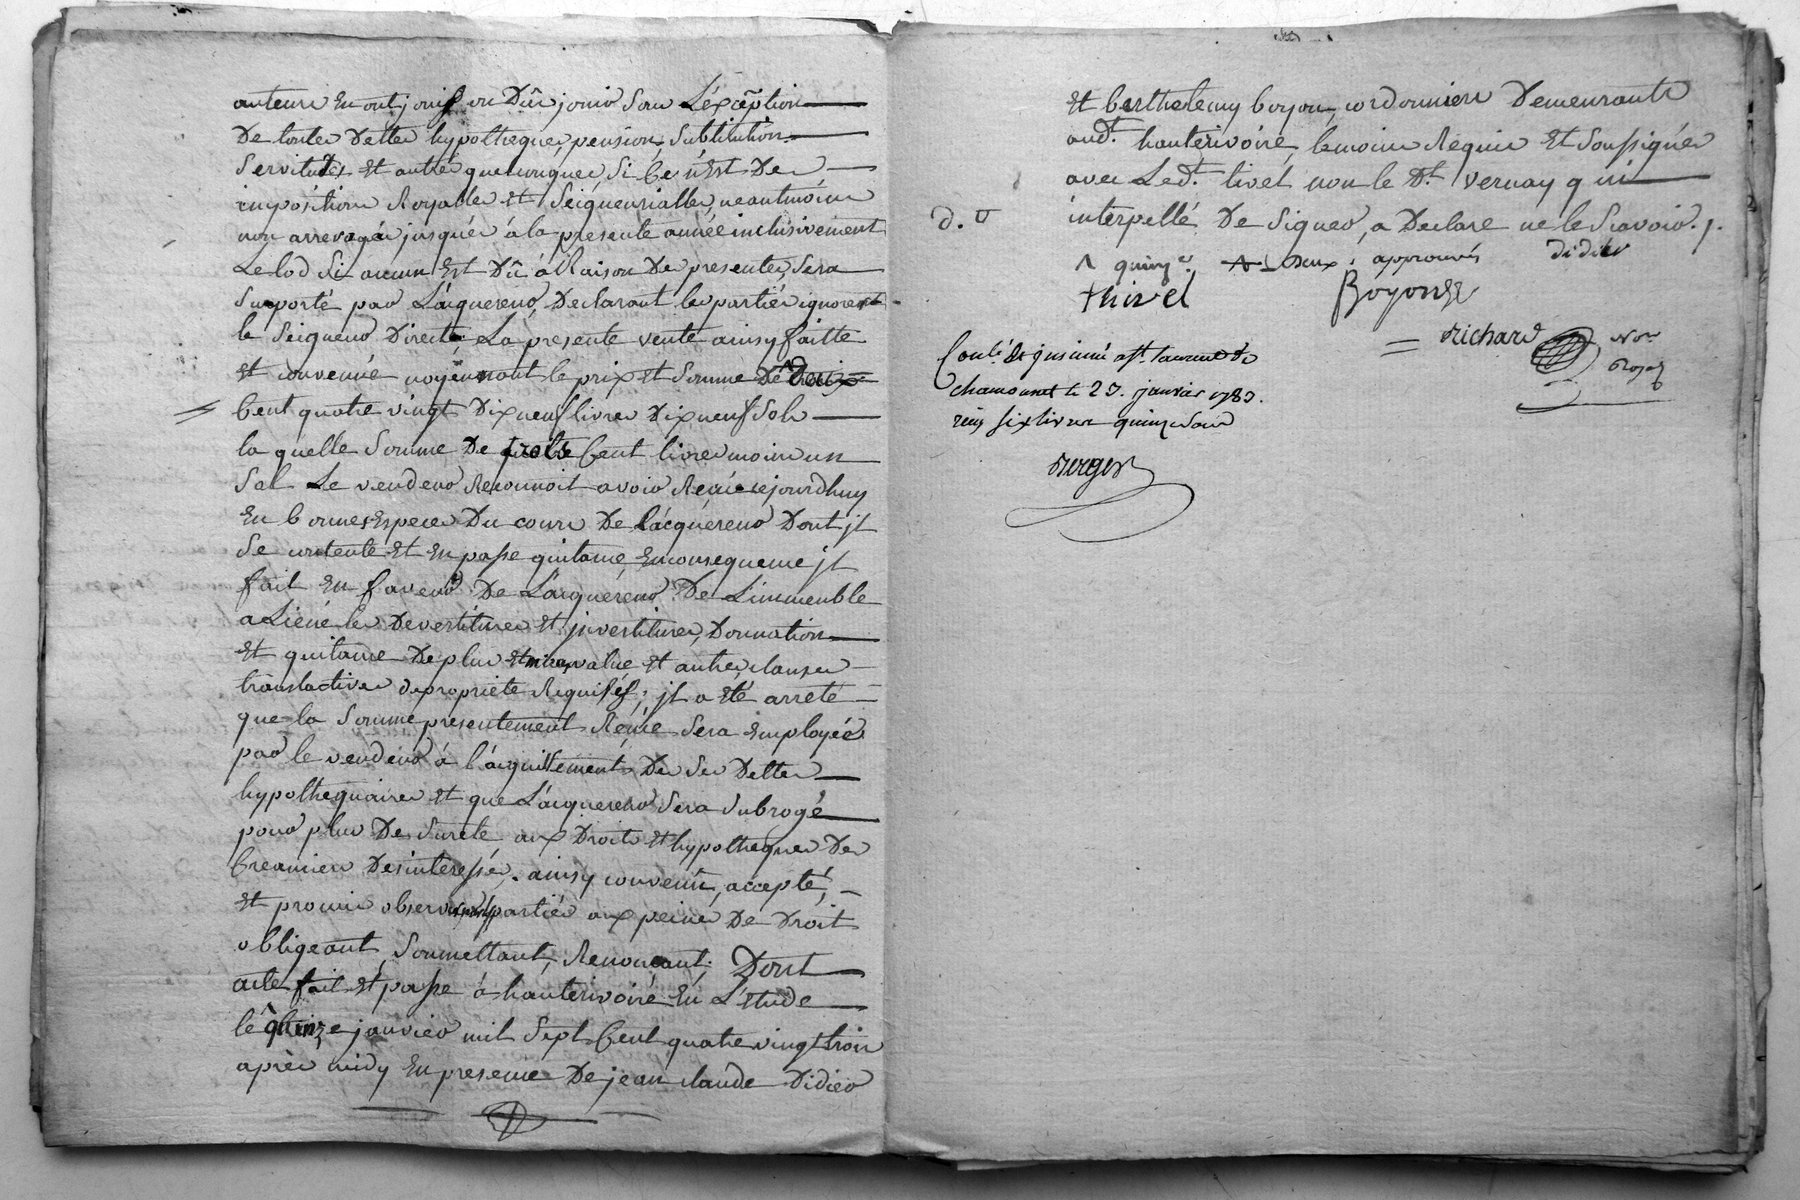 auteurs en ont jouis ou dû jouir sous L'éxception
De toutes Dettes hypotheques, pension, Substitution
Servitudes et autres quelconques, Si Ce n'Est Des
impositions Royalles et Seigneurialles, neantmoins
non arreragées jusqués à la présente année inclusivement
Le lod Si aucun Est Dû à Raison De presentes, Sera
Suporté par L'acquereur, Declarant les partiés ignorer
le Seigneur Direct, La presente vente ainsy faitte
et convenue moyennant le prix et Somme De Deux
Cent quatre vingt Dix neuf livres Dix neuf Sols
la quelle Somme De trois Cent livres moins un
Sol Le vendeur Reconnoit avoir Reçue cejourdhuy
En bonnes Especes Du cours De l'acquéreur Dont jl
Se contente et En passe quitance, En consequence jl
fait En faveur De L'acquéreur De L'immeuble
aLiéné les Devestitures et jnvestitures, Donnation
et quitance De plus et mieux value et autres clauses
translactives de propriété Requises; jl a été arreté
que la Somme presentement Reçue Sera Employée
par le vendeur à l'acquittement De Ses Dettes
hypothequaires et que L'acquereur Sera Subrogé
pour plus De Sureté aux Droits et hypotheques Des
Creanciers Desinteressés. ainsy convenu, accepté,
et promis observer partiés aux peines De Droit
obligeant, Soumettant, Renonçant; Dont
acte fait et passé à hauterivoiré En L'etude
le quinze janvier mil Sept Cent quatre vingt trois
après midy En presence De jean claude Didier
Et berthelemy boyon, cordonniers Demeurants
aud.t hauterivoiré, temoins Requis et Soussignés
avec Led.t tivel non le D.t vernay qui
interpellé De Signer, a Declaré ne le Scavoir.
quinze. deux. approuvés didier
thivel Boyon
richard No.re
Royal
Contlé et jnsinué à St. laurent de
chamousset le 23. janvier 1783.
reçu six livres quinze sous